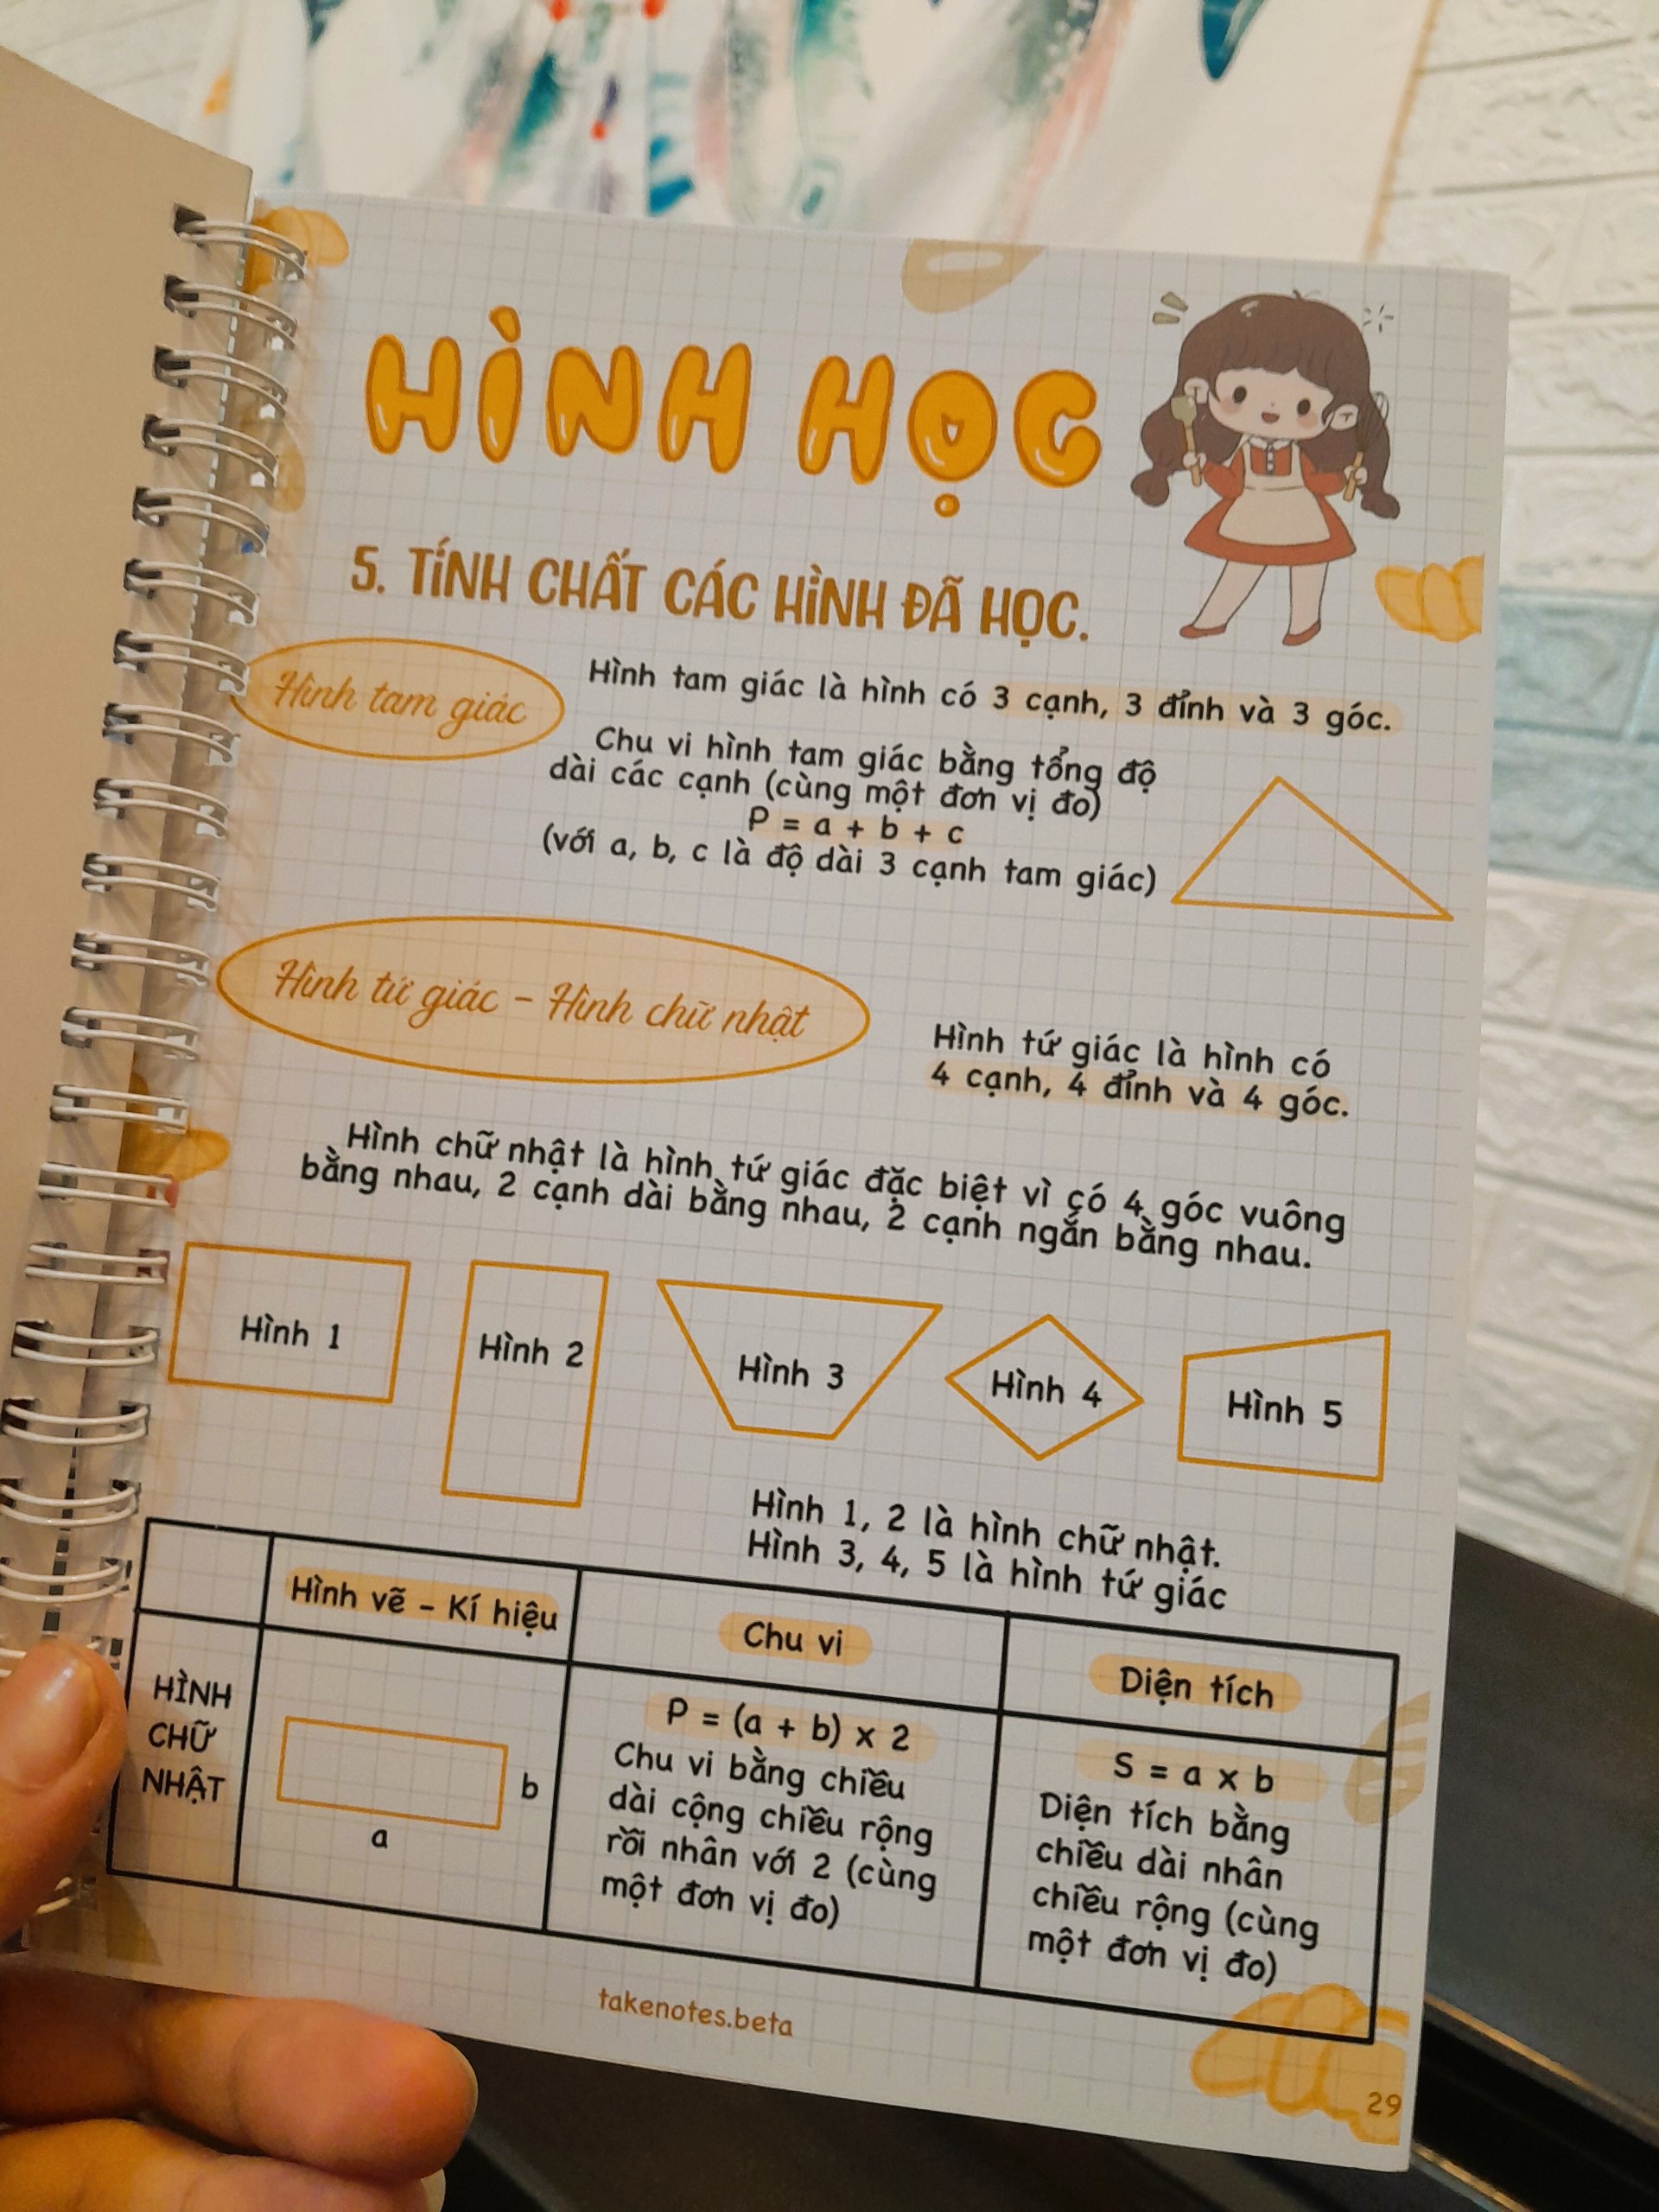 HÌNH HỌC
5. TÍNH CHẤT CÁC HÌNH ĐÃ HỌC.
Hình tam giác
Hình tam giác là hình có 3 cạnh, 3 đỉnh và 3 góc.
Chu vi hình tam giác bằng tổng độ
dài các cạnh (cùng một đơn vị đo)
P = a + b + c
(với a, b, c là độ dài 3 cạnh tam giác)
Hình tứ giác - Hình chữ nhật
Hình tứ giác là hình có
4 cạnh, 4 đỉnh và 4 góc.
Hình chữ nhật là hình tứ giác đặc biệt vì có 4 góc vuông
bằng nhau, 2 cạnh dài bằng nhau, 2 cạnh ngắn bằng nhau.
Hình 1
Hình 2
Hình 3
Hình 4
Hình 5
Hình 1, 2 là hình chữ nhật.
Hình 3, 4, 5 là hình tứ giác
Hình vẽ - Kí hiệu
Chu vi
Diện tích
HÌNH
CHỮ
NHẬT
b
a
P = (a + b) x 2
Chu vi bằng chiều
dài cộng chiều rộng
rồi nhân với 2 (cùng
một đơn vị đo)
S = a x b
Diện tích bằng
chiều dài nhân
chiều rộng (cùng
một đơn vị đo)
takenotes.beta
29